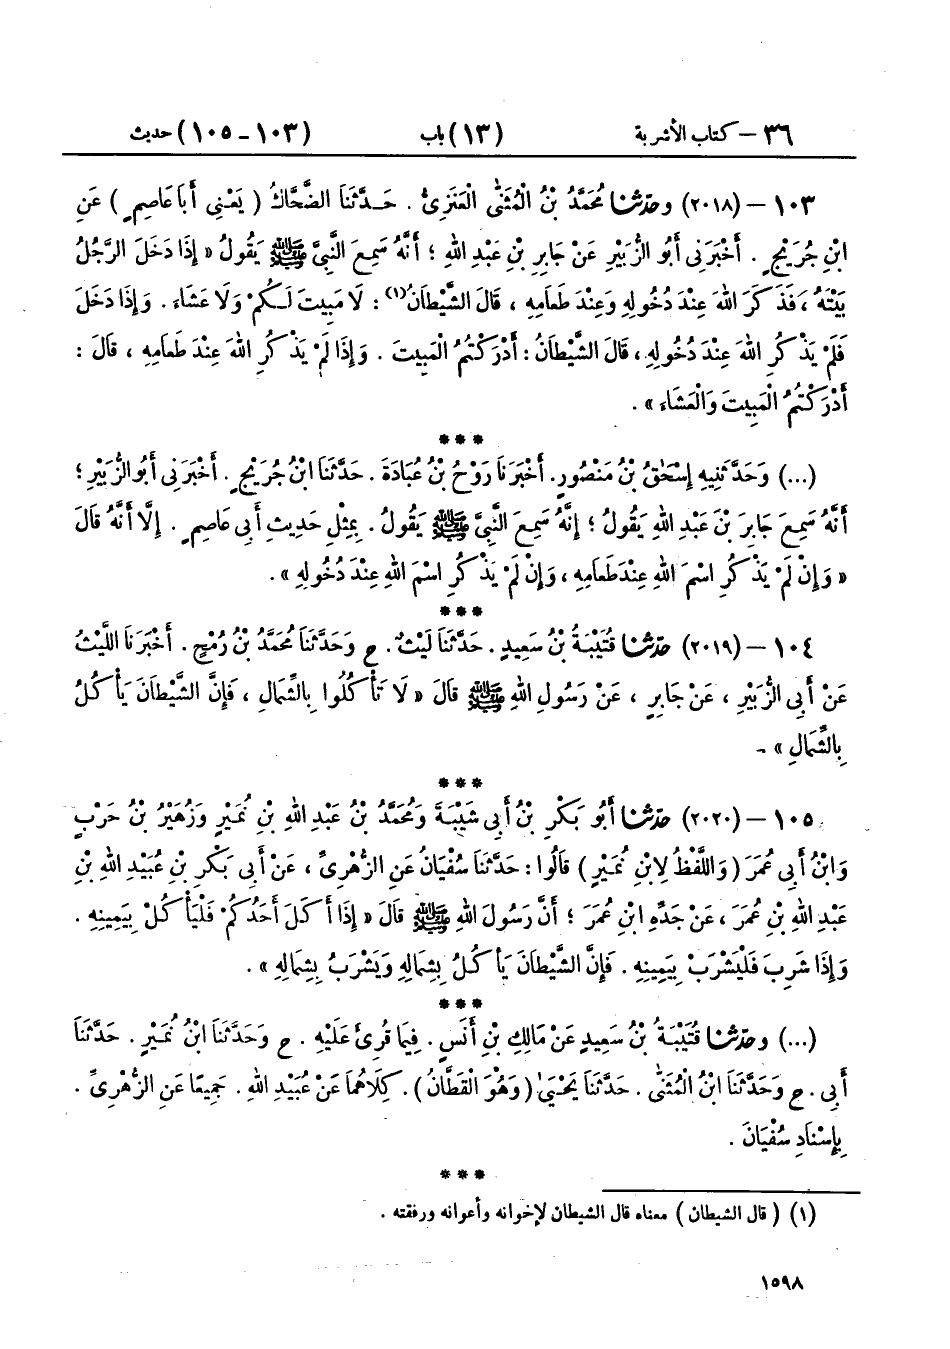 ٣٦ – كتاب الأشربة (١٣) باب (١٠٣ – ١٠٥) حديث
١٠٣ – (٢٠١٨) وحدّثنا مُحَمَّدُ بْنُ الْمُثَنَّى الْعَنَزِىُّ . حَدَّثَنَا الضَّحَّاكُ ( يَعْنِى أَبَا عَاصِمٍ ) عَنِ
ابْنِ جُرَيْجٍ . أَخْبَرَنِى أَبُو الزُّبَيْرِ عَنْ جَابِرِ بْنِ عَبْدِ اللهِ ؛ أَنَّهُ سَمِعَ النَّبِىَّ ﷺ يَقُولُ « إِذَا دَخَلَ الرَّجُلُ
بَيْتَهُ ، فَذَكَرَ اللهَ عِنْدَ دُخُولِهِ وَعِنْدَ طَعَامِهِ ، قَالَ الشَّيْطَانُ(١) : لَا مَبِيتَ لَكُمْ وَلَا عَشَاءَ . وَإِذَا دَخَلَ
فَلَمْ يَذْكُرِ اللهَ عِنْدَ دُخُولِهِ ، قَالَ الشَّيْطَانُ : أَدْرَكْتُمُ الْمَبِيتَ . وَإِذَا لَمْ يَذْكُرِ اللهَ عِنْدَ طَعَامِهِ ، قَالَ :
أَدْرَكْتُمُ الْمَبِيتَ وَالْعَشَاءَ » .
***
(...) وَحَدَّثَنِيهِ إِسْحَٰقُ بْنُ مَنْصُورٍ . أَخْبَرَنَا رَوْحُ بْنُ عُبَادَةَ . حَدَّثَنَا ابْنُ جُرَيْجٍ . أَخْبَرَنِى أَبُو الزُّبَيْرِ ؛
أَنَّهُ سَمِعَ جَابِرَ بْنَ عَبْدِ اللهِ يَقُولُ ؛ إِنَّهُ سَمِعَ النَّبِىَّ ﷺ يَقُولُ . بِمِثْلِ حَدِيثِ أَبِى عَاصِمٍ . إِلَّا أَنَّهُ قَالَ
« وَإِنْ لَمْ يَذْكُرِ اسْمَ اللهِ عِنْدَ طَعَامِهِ ، وَإِنْ لَمْ يَذْكُرِ اسْمَ اللهِ عِنْدَ دُخُولِهِ » .
***
١٠٤ – (٢٠١٩) حدّثنا قُتَيْبَةُ بْنُ سَعِيدٍ . حَدَّثَنَا لَيْثٌ . ح وَحَدَّثَنَا مُحَمَّدُ بْنُ رُمْحٍ . أَخْبَرَنَا اللَّيْثُ
عَنْ أَبِى الزُّبَيْرِ ، عَنْ جَابِرٍ ، عَنْ رَسُولِ اللهِ ﷺ قَالَ « لَا تَأْكُلُوا بِالشِّمَالِ ، فَإِنَّ الشَّيْطَانَ يَأْكُلُ
بِالشِّمَالِ » .
***
١٠٥ – (٢٠٢٠) حدّثنا أَبُو بَكْرِ بْنُ أَبِى شَيْبَةَ وَمُحَمَّدُ بْنُ عَبْدِ اللهِ بْنِ نُمَيْرٍ وَزُهَيْرُ بْنُ حَرْبٍ
وَابْنُ أَبِى عُمَرَ ( وَاللَّفْظُ لِابْنِ نُمَيْرٍ ) قَالُوا : حَدَّثَنَا سُفْيَانُ عَنِ الزُّهْرِىِّ ، عَنْ أَبِى بَكْرِ بْنِ عُبَيْدِ اللهِ بْنِ
عَبْدِ اللهِ بْنِ عُمَرَ ، عَنْ جَدِّهِ ابْنِ عُمَرَ ؛ أَنَّ رَسُولَ اللهِ ﷺ قَالَ « إِذَا أَكَلَ أَحَدُكُمْ فَلْيَأْكُلْ بِيَمِينِهِ .
وَإِذَا شَرِبَ فَلْيَشْرَبْ بِيَمِينِهِ . فَإِنَّ الشَّيْطَانَ يَأْكُلُ بِشِمَالِهِ وَيَشْرَبُ بِشِمَالِهِ » .
***
(...) وحدّثنا قُتَيْبَةُ بْنُ سَعِيدٍ عَنْ مَالِكِ بْنِ أَنَسٍ . فِيمَا قُرِئَ عَلَيْهِ . ح وَحَدَّثَنَا ابْنُ نُمَيْرٍ . حَدَّثَنَا
أَبِى . ح وَحَدَّثَنَا ابْنُ الْمُثَنَّى . حَدَّثَنَا يَحْيَىٰ ( وَهُوَ الْقَطَّانُ ) . كِلَاهُمَا عَنْ عُبَيْدِ اللهِ . جَمِيعًا عَنِ الزُّهْرِىِّ .
بِإِسْنَادِ سُفْيَانَ .
***
(١) ( قال الشيطان ) معناه قال الشيطان لإخوانه وأعوانه ورفقته .
١٥٩٨